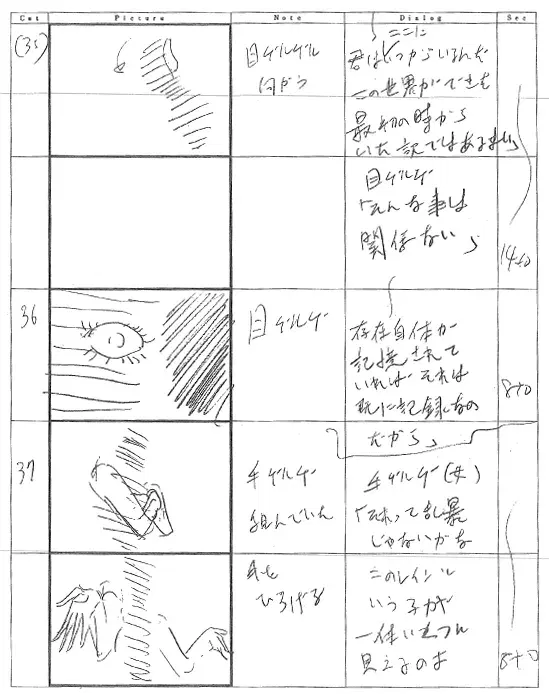 Cut Picture Note Dialog Sec
(35)
目ゲルゲル
「ここに
君はいつからいるんだ
この世界ができた
最初の時から
いた訳ではあるまい」
目ゲルゲ
「そんな事は
関係ない」
14+0
36
目ゲルゲ
存在自体が
記憶されて
いれば それは
既に記録なの
だから」
8+0
37
手ゲルゲ
組んでいた
手ゲルゲ(女)
「それって乱暴
じゃないかな
手を
ひろげる
このレインと
いう子が
見えるのよ
8+0